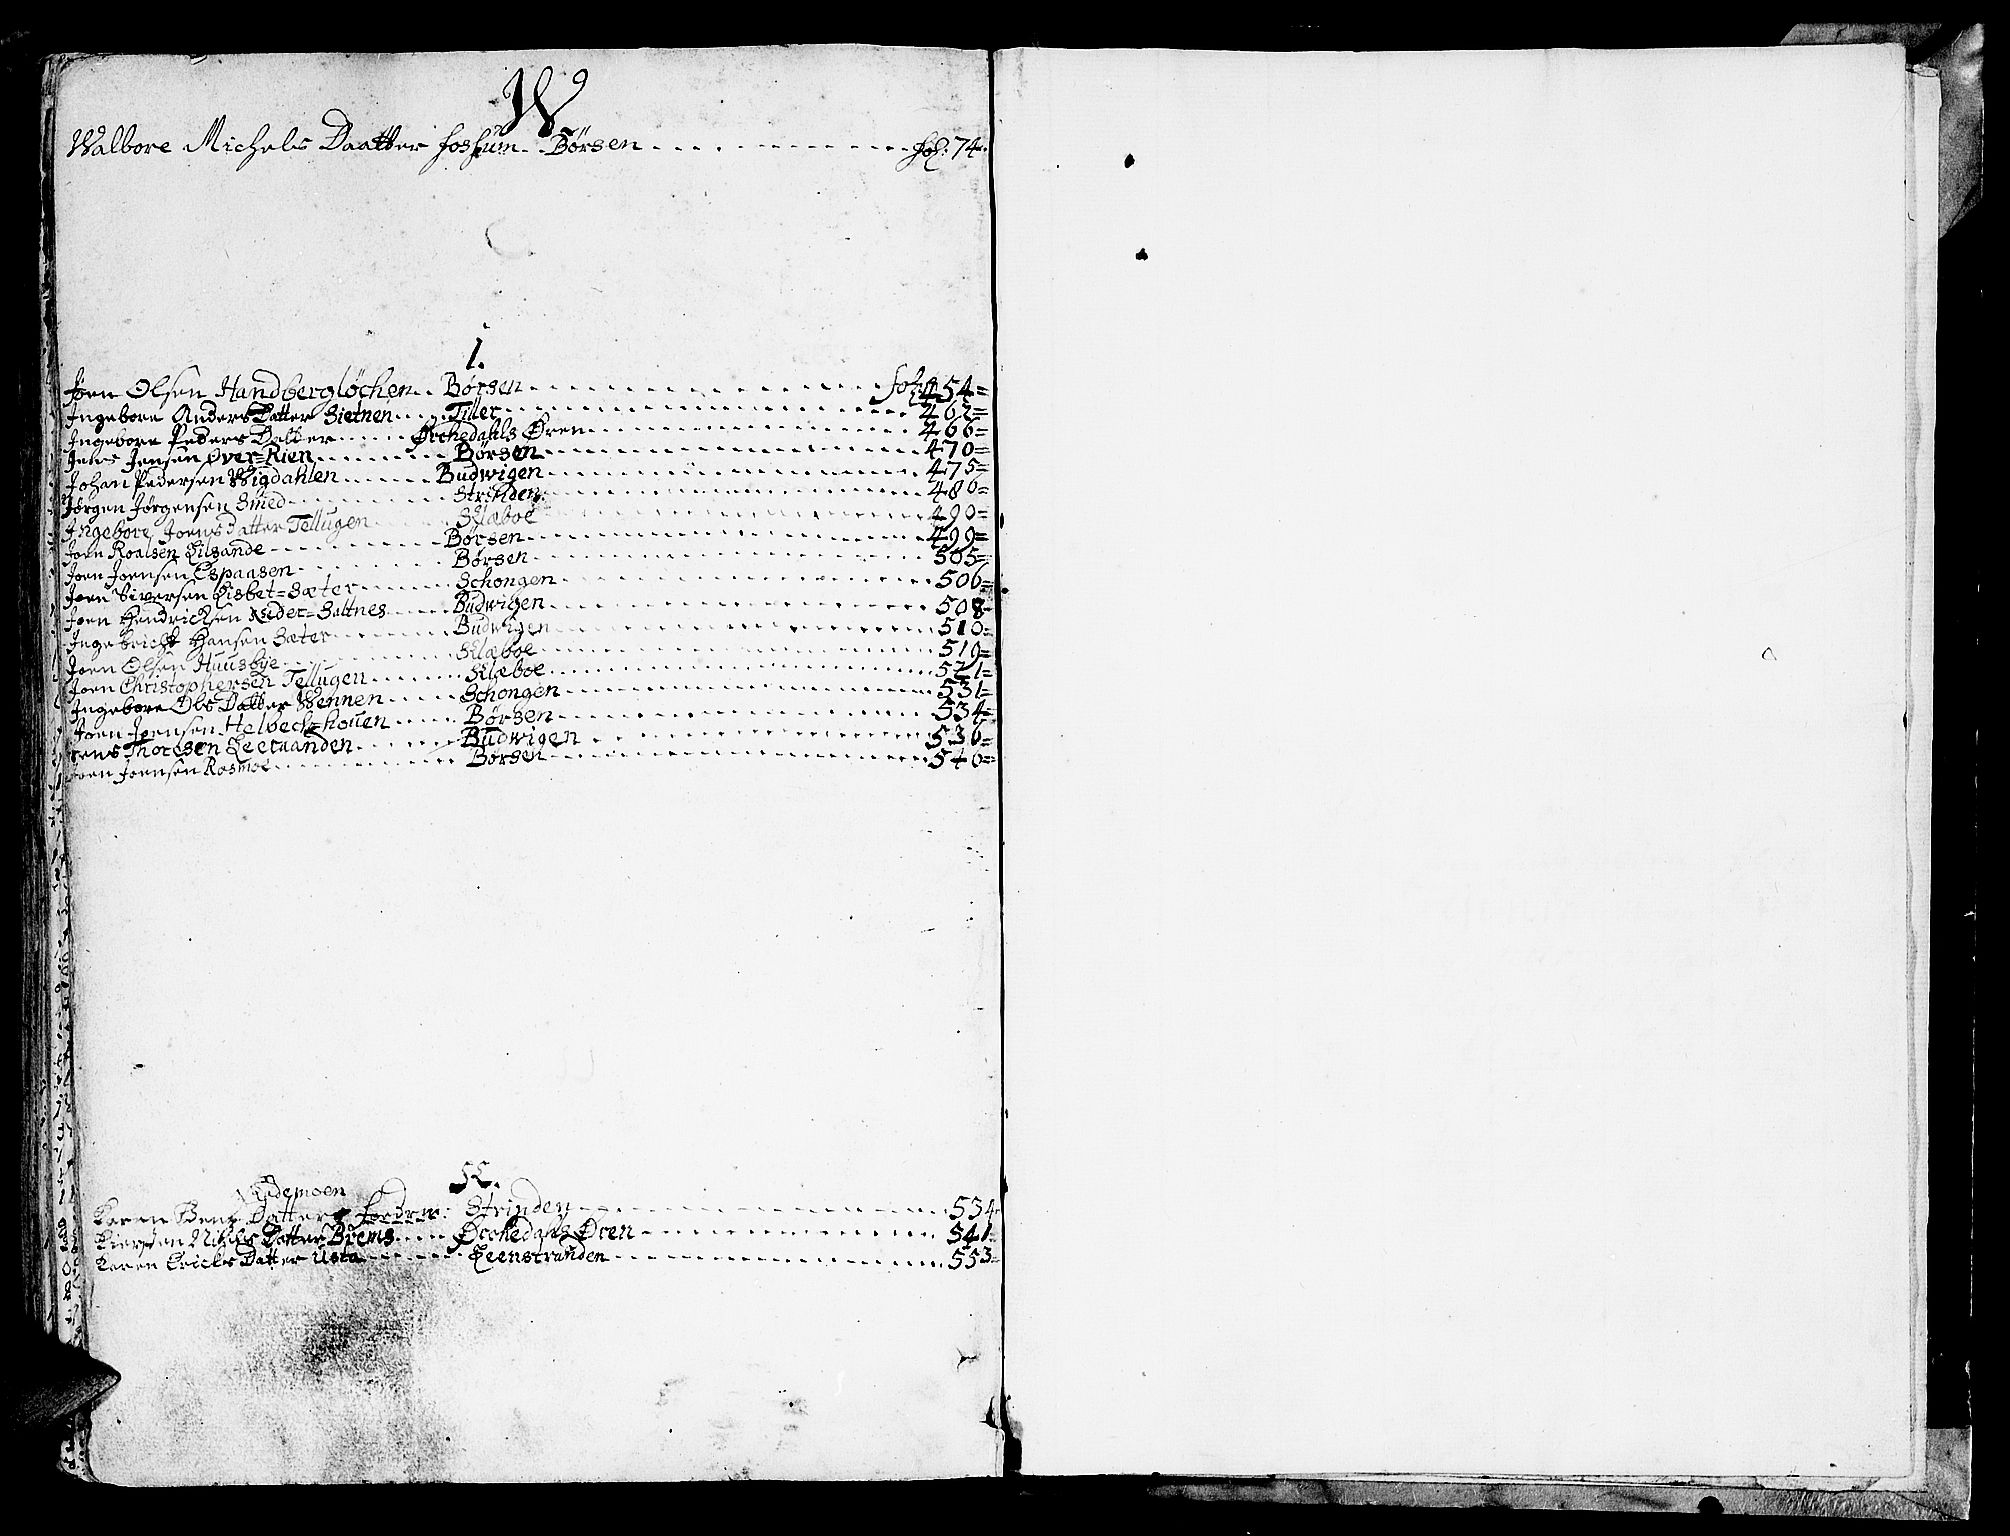 W
Walbore Michels Daatter Fossum Börsen fol: 74
I.
Joen Olsen Handberglöchen Börsen fol: 454
Ingebore Anders Datter Sietnen Tiller 462
Ingebore Peders Datter Örchedahls Ören 466
Jens Jensen Över-Rien Börsen 470
Johan Pedersen Wigdahlen Budwigen 475
Jörgen Jörgensen Smed Strinden 486
Ingebore Joens Datter Tellugen Klæboe 490
Joen Roalsen Lilsande Börsen 499
Joen Joensen Espaasen Börsen 505
Joen Siversen Lisbet-Sæter Schongen 506
Joen Hendrichsen Neder-Saltnes Budwigen 508
Ingebricht Hansen Sæter Budwigen 510
Joen Olsen Huusbye Klæboe 519
Joen Christophersen Tellugen Klæboe 521
Ingebore Ols Datter Wennen Schongen 531
Joen Joensen Helbech-houen Börsen 534
Jens Thoresen Leeraanden Budwigen 536
Joen Joensen Rosmoe Börsen 546
K.
Nidemoen
Karen Bens Datter Strinden 534
Kiersten Niels Datter Brems Örchedahls Ören 541
Karen Erichs Datter Usta Leenstranden 553